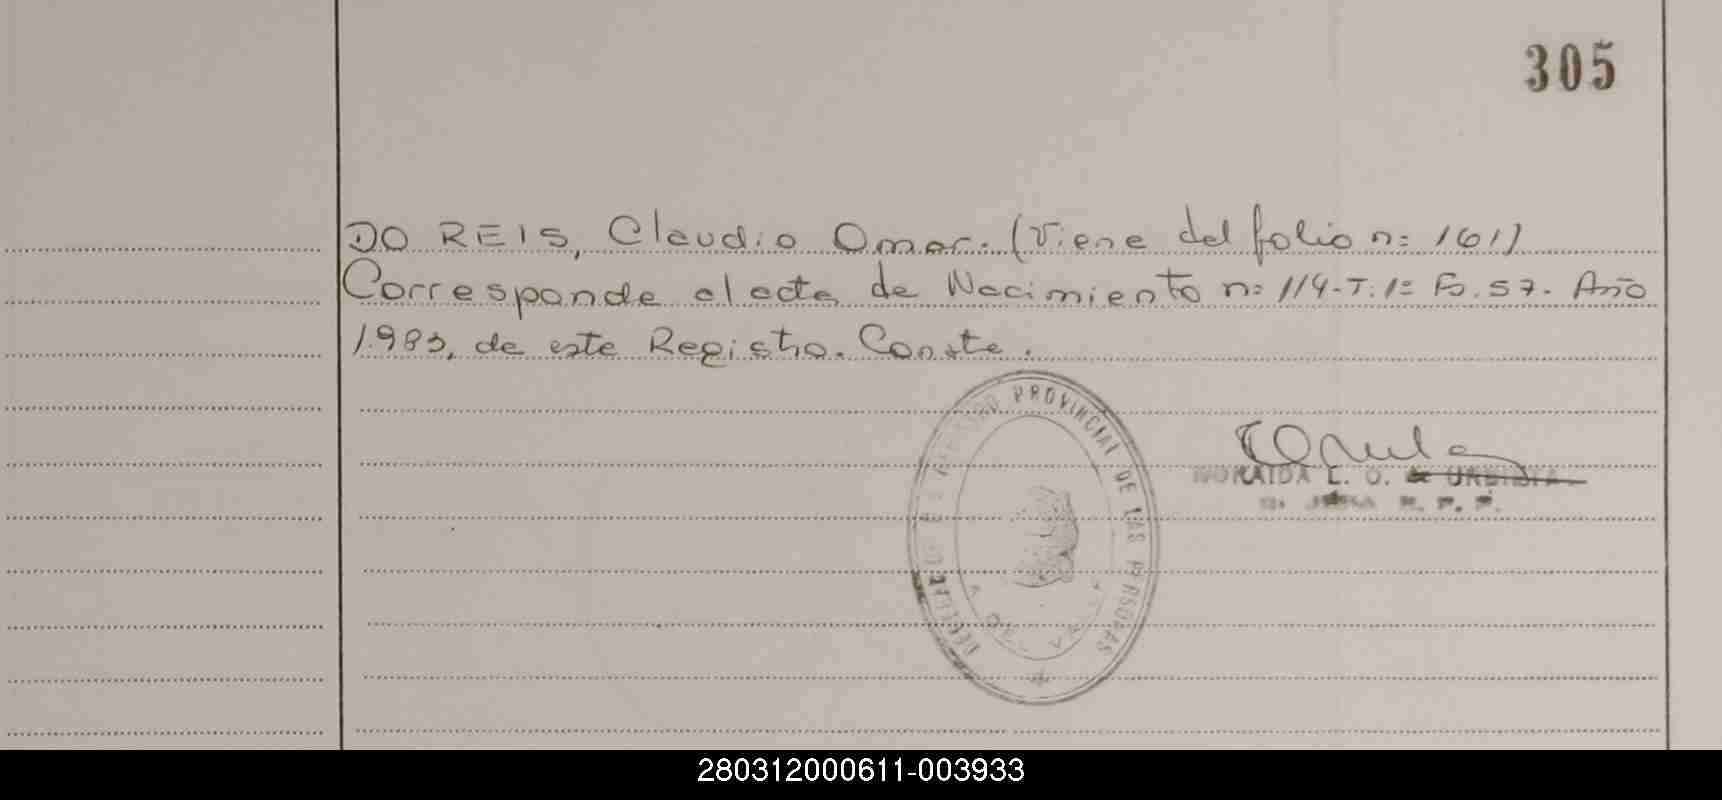 305
DO REIS, Claudio Omar. (Viene del folio n: 161)
Corresponde al acta de Nacimiento n: 114-T:1º Fo. 57- Año
1.983, de este Registro. Conste.
REGISTRO PROVINCIAL DE LAS PERSONAS
DEL VALLE
NORAIDA L. O. de URBISTA
R. P. P.
280312000611-003933